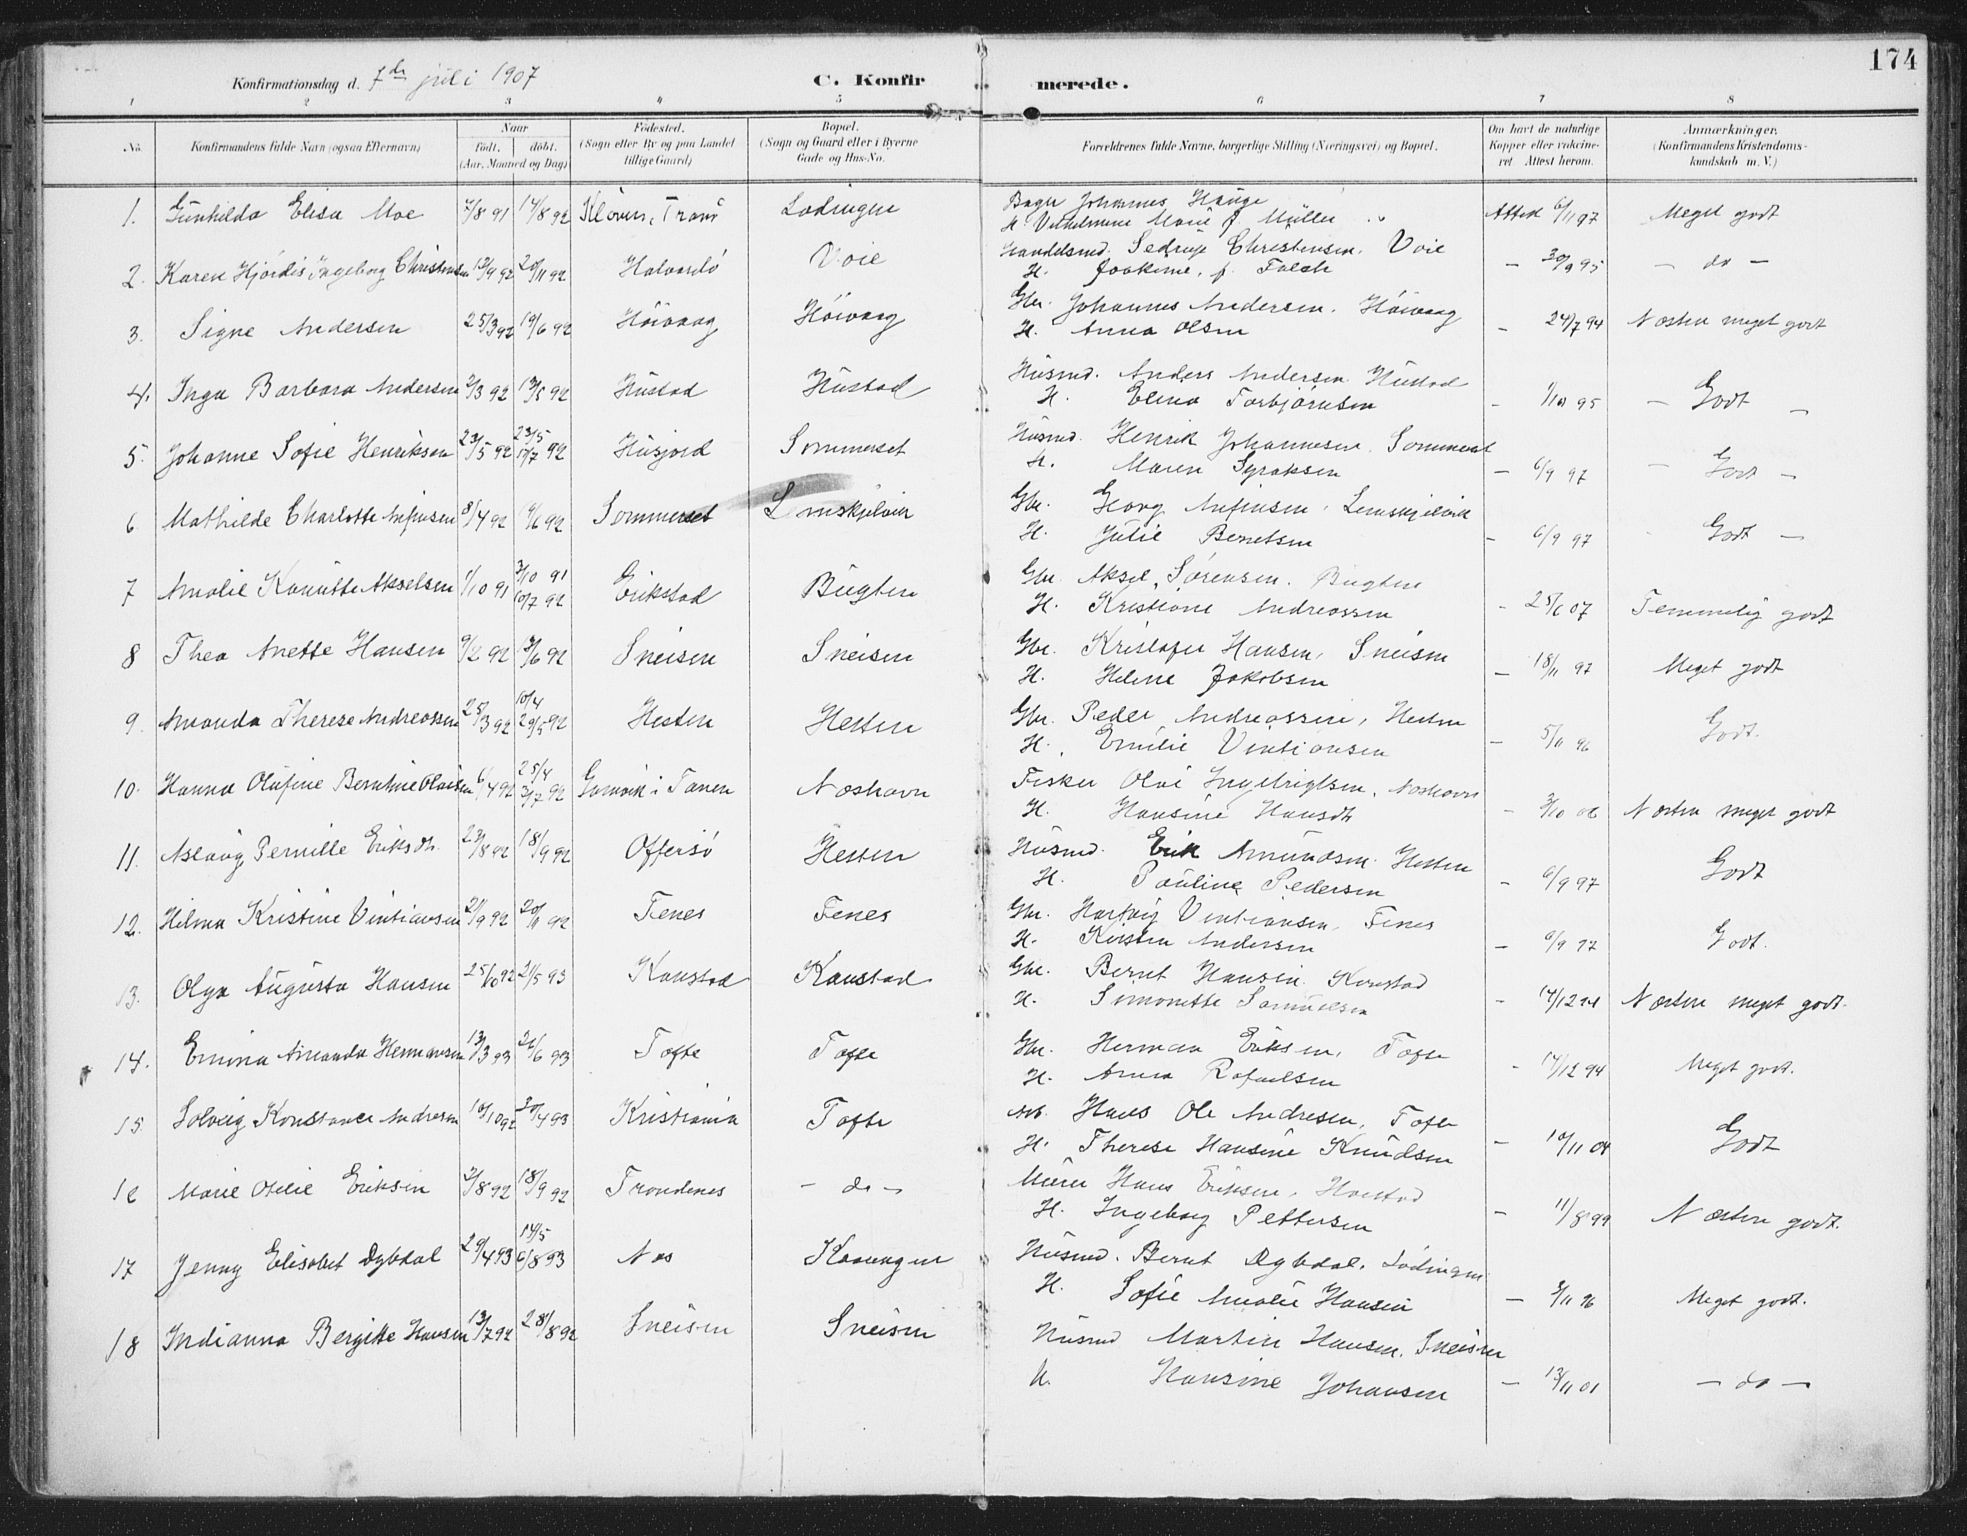 174
Konfirmationsdag d. 7de juli 1907 C. Konfirmerede.
1 2 3 4 5 6 7 8
No. Konfirmandens fulde Navn (ogsaa Efternavn) Naar født. døbt. (Aar, Maaned og Dag) Fødested. (Sogn eller By og paa Landet tillige Gaard) Bopæl. (Sogn og Gaard eller i Byerne Gade og Hus-No. Forældrenes fulde Navne, borgerlige Stilling (Næringsvei) og Bopæl. Om havt de naturlige Kopper eller vakcineret Attest herom. Anmærkninger. (Konfirmandens Kristendomskundskab m. V.)
1. Gunhilda Elisa Moe 7/8 91 14/8 92 Tranø Lødingen Johannes Hauge Attest 6/11 97 Meget godt
H. Vilhelmine Marie f. Müller
2. Karen Hjørdis Ingeborg Christensen 13/9 92 20/11 92 Halvardø Voie Handelsmd. Christensen, Voie
H. Joakime, f. Falch — 30/9 95 — do —
3. Signe Andersen 25/3 92 19/6 92 Høivaag Høivaag Gbr. Johannes Andersen, Høivaag
H. Anna Olsen - 24/7 94 Næsten meget godt
4. Inga Barbara Andersen 2/3 92 13/5 92 Hustad Hustad Husmd. Anders Andersen Hustad
H. Elina Torbjørnsen - 1/10 95 — Godt —
5. Johanne Sofie Henriksen 23/5 92 23/5 17/7 92 Husjord Sommerset Husmd. Henrik Johannesen Sommerset
H. Maren Syraksen — 6/9 97 — Godt —
6 Mathilde Charlotte Anfinsen 8/4 92 19/6 92 Sommerset Lemskjelvik Gbr. Georg Anfinsen, Lemskjelvik
H. Julie Berntsen - 6/9 97 Godt —
7 Amalie Kanutte Akselsen 1/10 91 3/10 91 10/7 92 Erikstad Bugten Gbr. Aksel Sørensen. Bugten
H. Kristiane Andreassen - 25/6 07 Temmelig godt
8 Thea Anette Hansen 9/2 92 13/6 92 Sneisen Sneisen Gbr. Kristofer Hansen, Sneisen
H. Helene Jakobsen — 18/11 97 Meget godt
9. Amanda Therese Andreassen 25/3 92 10/4 29/5 92 Hesten Hesten Gbr. Peder Andreassen, Hesten
H. Emilie Vintiansen - 5/11 96 Godt.
10. Hanna Olufine Berntine Olaisen 6/4 92 25/4 3/7 92 Gamvik i Tanen Næshavn Fisker Olai Ingebrigtsen, Næshavn
H. Hansine Hansdt - 3/10 06 Næsten meget godt
11. Aslaug Pernille Eriksdt. 23/8 92 18/9 92 Offersø Hesten Husmd. Erik Amundsen. Hesten
H. Pauline Pedersen - 6/9 97 Godt
12. Hilma Kristine Vintiansen 21/9 92 20/11 92 Fenes Fenes Gbr. Hartvig Vintiansen, Fenes
H. Kirsten Andersen — 6/9 97 Godt.
13. Olga Augusta Hansen 25/10 92 21/5 93 Kanstad Kanstad Gbr. Bernt Hansen Kanstad
H. Simonette Samuelsen - 14/12 94 Næsten meget godt.
14. Emma Amanda Hermansen 13/3 93 26/6 93 Tofte Tofte Gbr. Herman Eriksen, Tofte
H. Anna Rafaelsen - 17/12 94 Meget godt.
15 Solveig Konstance Andresen 10/10 92 30/4 93 Kristiania Tofte Hans Ole Andresen, Tofte
H. Therese Hansine Knudsen — 10/11 04 Godt
16 Marie Otelie Eriksen 2/8 92 18/9 92 Trondenes — do — Murer Hans Eriksen, Harstad
H. Ingeborg Pettersen - 11/8 99 Næsten godt.
17 Jenny Elisabet Dybdal 29/4 93 14/5 6/8 93 Næs Kaarengen Husmd. Bernt Dybdal, Lødingen
H. Sofie Amalie Hansen — 3/11 96 Meget godt.
18 Indianna Bergitte Hansen 13/7 92 28/8 92 Sneisen Sneisen Husmd Martin Hansen, Sneisen
H. Hansine Johansen — 13/11 01 — do —